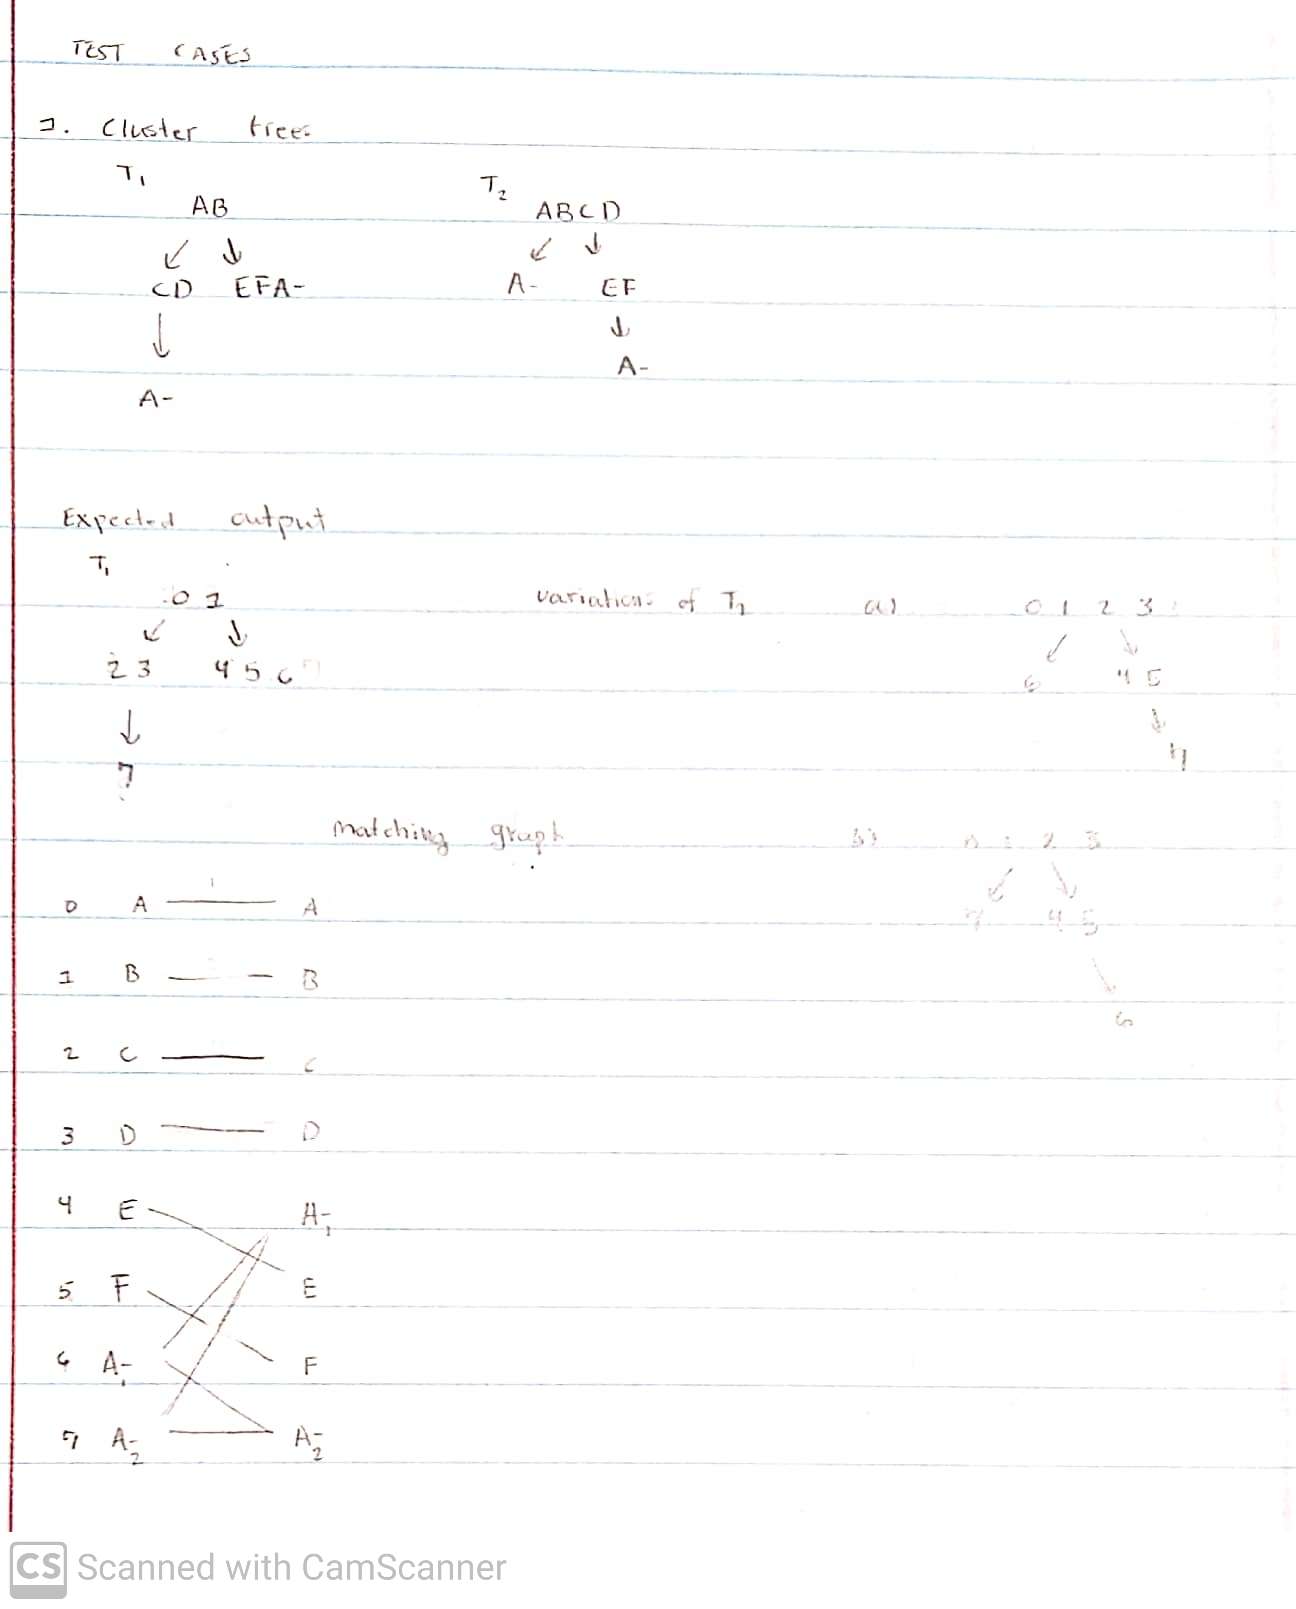 TEST CASES
1. Cluster trees
T1 T2
AB ABCD
CD EFA- A- EF
A-
A-
Expected output
T1
0 1 variations of T2 a) 0 1 2 3
2 3 4 5 6 6 4 5
7 7
matching graph b) 0 1 2 3
7 4 5
0 A A
1 B B
6
2 C C
3 D D
4 E A-1
5 F E
6 A-1 F
7 A-2 A-2
CS Scanned with CamScanner